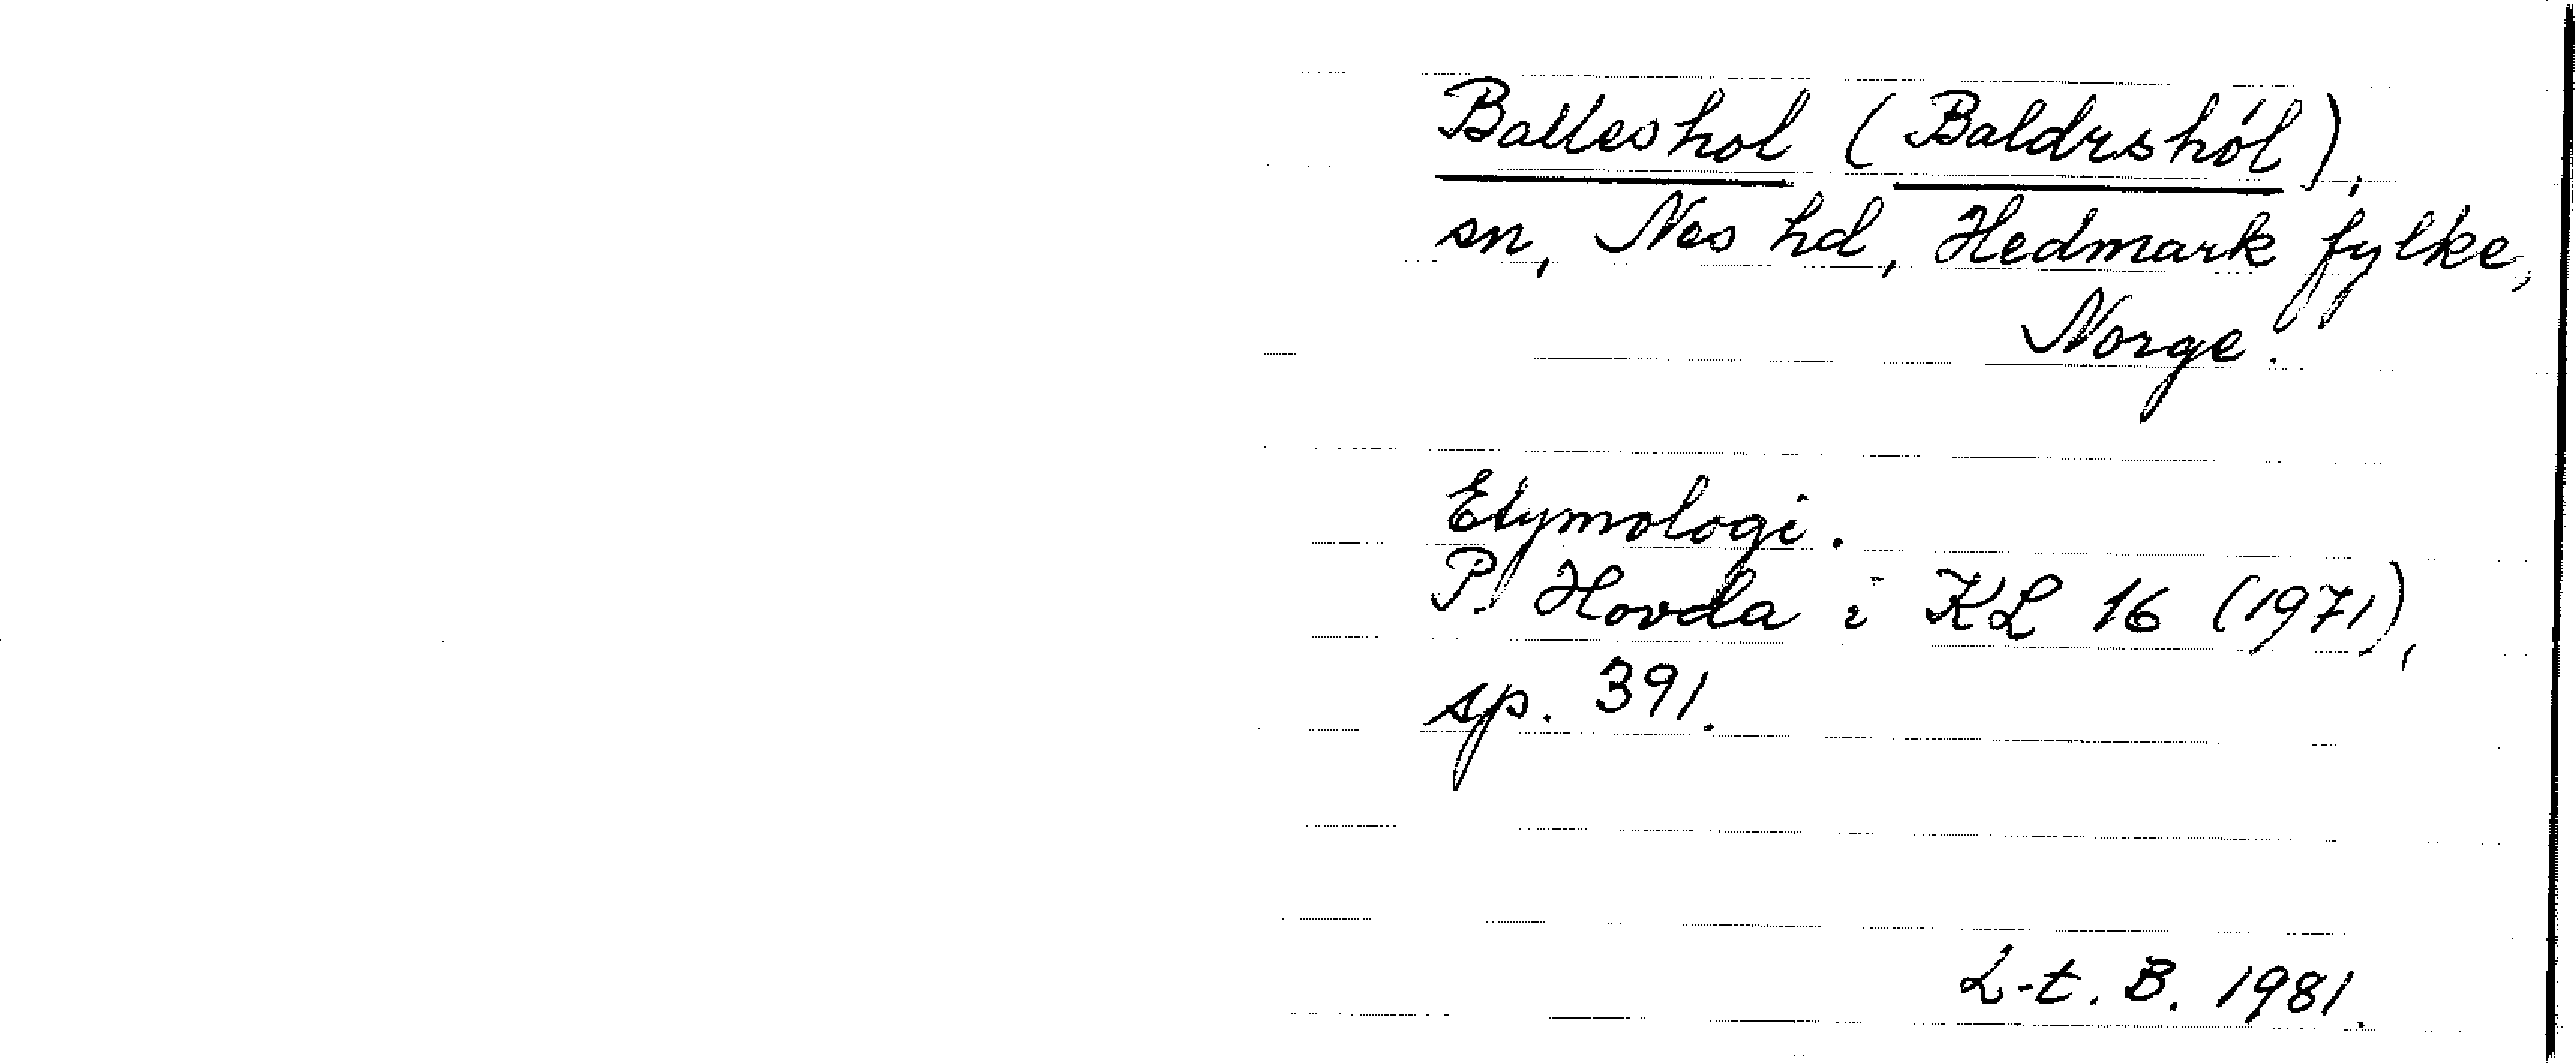 Balleshol (Baldrshól),
sn, Nes hd, Hedmark fylke,
Norge.
Etymologi.
P. Hovda i KL 16 (1971),
sp. 391.
L-t. B. 1981.